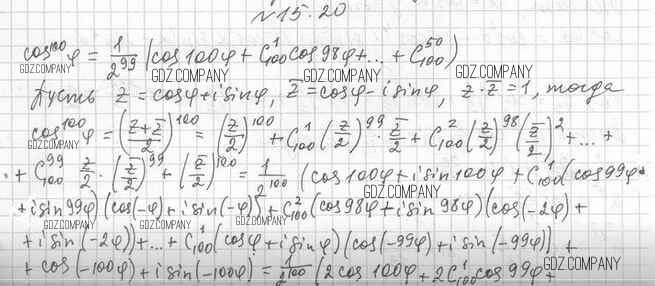 №15.20
cos¹⁰⁰φ = 1/2⁹⁹ (cos100φ + C¹₁₀₀cos98φ + ... + C⁵⁰₁₀₀)
GDZ.COMPANY GDZ.COMPANY GDZ.COMPANY GDZ.COMPANY
Пусть z = cosφ + i sinφ, z̅ = cosφ - i sinφ, z · z̅ = 1, тогда
cos¹⁰⁰φ = ((z+z̅)/2)¹⁰⁰ = (z/2)¹⁰⁰ + C¹₁₀₀(z/2)⁹⁹ · z̅/2 + C²₁₀₀(z/2)⁹⁸(z̅/2)² + ... +
GDZ.COMPANY
+ C⁹⁹₁₀₀ z/2 · (z̅/2)⁹⁹ + (z̅/2)¹⁰⁰ = 1/2¹⁰⁰ (cos100φ + i sin100φ + C¹₁₀₀(cos99φ +
GDZ.COMPANY
+ i sin99φ)(cos(-φ) + i sin(-φ)) + C²₁₀₀(cos98φ + i sin98φ)(cos(-2φ) +
GDZ.COMPANY GDZ.COMPANY
+ i sin(-2φ)) + ... + C¹₁₀₀(cosφ + i sinφ)(cos(-99φ) + i sin(-99φ)) +
+ cos(-100φ) + i sin(-100φ) = 1/2¹⁰⁰ (2cos100φ + 2C¹₁₀₀cos99φ +
GDZ.COMPANY